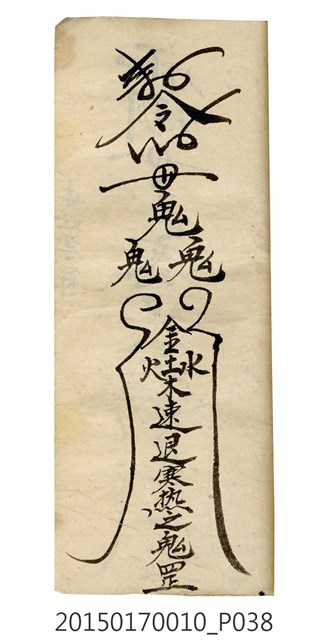 敕令
鬼
鬼 鬼
金
火 土 水
木
速退寒热之鬼罡
20150170010_P038